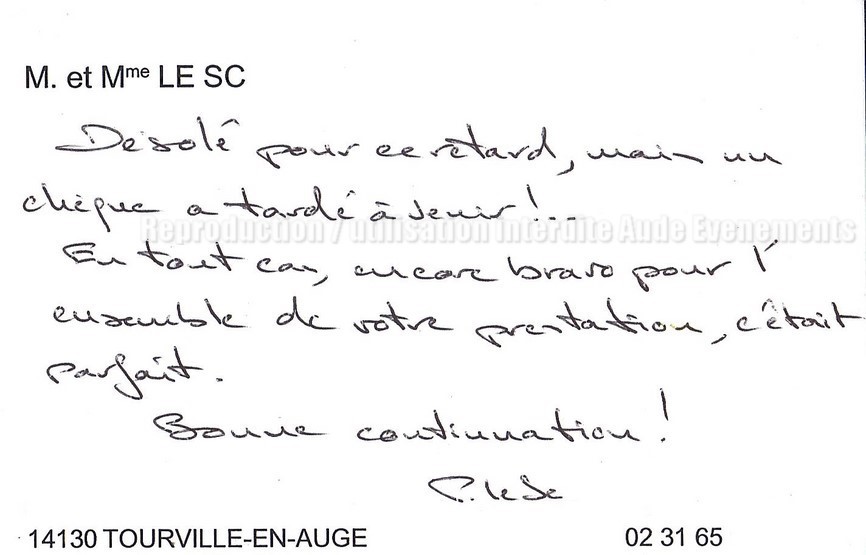 M. et Mme LE SC
Desolé pour ce retard, mais un
chèque a tardé à venir!..
Reproduction / utilisation interdite Aude Evenements
En tout cas, encore bravo pour l'
ensemble de votre prestation, c'était
parfait.
Bonne continuation!
P. Le Sc
14130 TOURVILLE-EN-AUGE 02 31 65